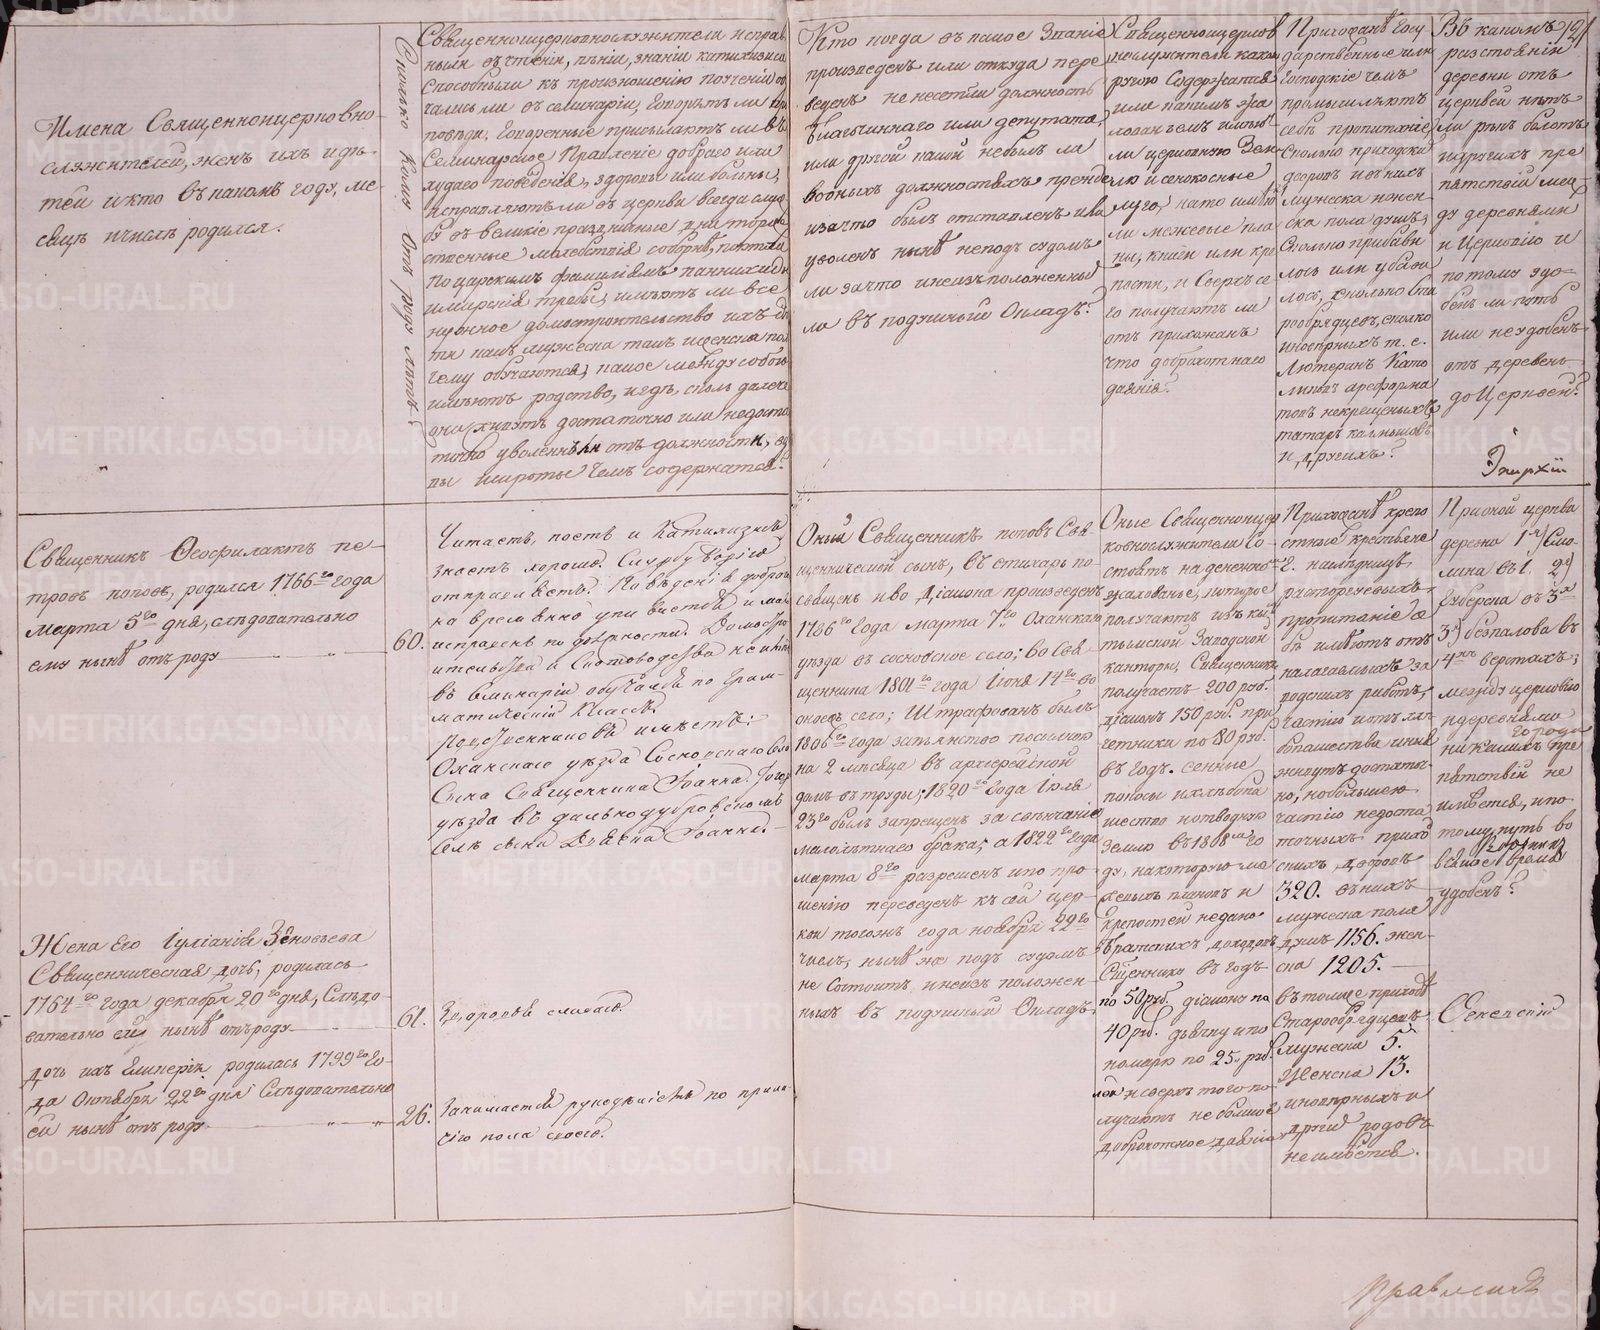 Имена Священноицерковно-
служителей, женъ ихъ и дѣ-
тей и кто въ какомъ году, ме-
сяцѣ и числѣ родился.
Сколько кому отъ роду лѣтъ?
Священноицерковнослужители исправ
ныли въ чтеніи, пѣніи, знаніи катихизиса
способныли къ произношенію поученій об
чались ли въ семинаріи, говорятъ ли про
повѣди, говоренные присылаютъ ли въ
Семинарское Правленіе добраго или
худаго поведенія, здоровы или больны,
исправляютъ ли въ церкви всегда служ
бу въ великіе праздничные дни торже
ственные молебствія соборнѣ, поютъ ли
по царскимъ фамиліямъ паннихиды
имирскія требы, имѣютъ ли все
нужное домостроительство ихъ дѣ
ти какъ мужеска такъ и женска пол
чему обучаются, какое между собою
имѣютъ родство, и едѣ, сколь далеко
они живутъ достаточно или недоста
точно уволенныя отъ должности, вдо
вы и сироты чемъ содержатся?
Кто когда въ какое званіе
произведенъ или откуда пере
веденъ не несетли должность
благочиннаго или депутата,
или другой какой небылъ ли
въ оныхъ должностяхъ прежде
изачто былъ отставленъ и ли
уволенъ нынѣ неподъ судомъ
ли зачто и неизъ положенныхъ
ли въ подушный окладъ?
Священноицерков
нослужители какою
ругою содержатся
или какимъ жа
лованьемъ имѣют
ли церковную зем
лю и сенокосные
луга, на то имѣют
ли межевые пла
ны, книги или кре
пости, и сверхъ се
го получаютъ ли
отъ прихожанъ
что доброхотнаго
даянія?
Прихожанѣ госу
дарственные или
господскіе чемъ
промышляютъ
себѣ пропитаніе
Сколько приходски
дворовъ и въ нихъ
мужеска и жен
ска пола душъ,
Сколько прибави
лось или убави
лось, сколько ста
рообрядцевъ, сколко
иновѣрныхъ т. е.
Лютеранъ Като
ликовъ и реформа
товъ некрещеныхъ
татаръ калмыковъ
и другихъ?
Въ какомъ 121
разстояніи
деревни отъ
церквей нѣтъ
ли рѣкъ болотъ
и другихъ пре
пятствій меж
ду деревнями
и Церковію и
по тому удо=
бенъ ли путь
или неудобенъ
отъ деревень
до Церквей?
Эпархіи
Священникъ Ѳеофилактъ пе-
тровъ поповъ, родился 1766го года
марта 5го дня, слѣдовательно
ему нынѣ отъ роду
60.
Читаетъ, поетъ и Катихизисъ
знаетъ хорошо. Службу Божію
отправляетъ. Поведенія добраго
исправенъ по должности. Домостро
ительства и Скотоводства не имѣ
въ Семинаріи обучался по Грам-
матическій классъ.
Родственниковъ имѣетъ:
Оханскаго уѣзда Сосновскаго Села
Сына Священника Іоанна.
уѣзда въ дальнодубровскомъ
Селѣ сына Діакона Іоанна.
Оный Священникъ поповъ Свя-
щеннической сынъ, въ стихарь по-
священъ и во діакона произведенъ
1786го года марта 7го Оханскаго
уѣзда въ сосновское село; во Свя-
щенника 1801го года Іюня 14го во
оноежъ село; Штрафованъ былъ
1806го года за пьянство посылкою
на 2 мѣсяца въ архіерейской
домъ въ труды; 1820го года Іюля
23го былъ запрещенъ за вѣнчаніе
малолѣтнаго брака; а 1822го года
марта 8го разрешенъ и по про-
шенію переведенъ къ сей цер-
кви тогожъ года ноября 22го
числа, нынѣ же подъ судомъ
не состоитъ и неизъ положен-
ныхъ въ подушный окладъ.
Оные Священноицер
ковнослужители Со-
стоятъ на денежно
жалованье, которое
получаютъ изъ кы
тымской Заводской
канторы, Священникъ
получаетъ 200 руб.
діаконъ 150 руб. при
четники по 80 руб.
въ годъ. сенные
покосы и хлѣбопа
шество и отводную
землю въ 1808мъ го
ду, на которую ме
жевыхъ плановъ и
крепостей не дано
братскихъ доходовъ
Священнику въ годъ
по 50 руб. діакону по
40 руб. дьячку и по
номарю по 25. руб.
лей и сверхъ того по-
лучаютъ не большое
доброхотное даяніе.
Прихожанѣ крепо
стные крестьяне
Г. наслѣдницъ
расторгуевыхъ
пропитаніе се
бѣ имѣютъ отъ
налагаемыхъ за
водскихъ работъ,
частію и отъ хлѣ
бопашества иные
живутъ достаточ-
но, но большею
частію недоста
точныхъ приход
скихъ дворовъ
320. въ нихъ
мужеска пола
душъ 1156. жен-
ска 1205.
въ томже приходѣ
Старообрядцевъ
Мужеска 5.
Женска 13.
иновѣрныхъ и
другихъ родовъ
неимѣется.
При оной церкви
деревни 1я) Смо-
лина въ 1. 2я)
Губернска въ 3хъ
3я) безпалова въ
4хъ верстахъ;
между церковію
и деревнями
никакихъ пре
пятствій не
имѣется, и по
тому путь во
всякое время
удобенъ?
Жена его Іуліанія Зѣновьева
Священническая дочь, родилась
1764го года декабря 20го дня, Слѣдо-
вательно ей нынѣ отъ роду
61.
Здоровья слабаго.
дочь ихъ Гликерія родилась 1799го го-
да Октября 22го дня Слѣдовательно
ей нынѣ отъ роду
26.
Занимается рукодѣліемъ по прили-
чію пола своего.